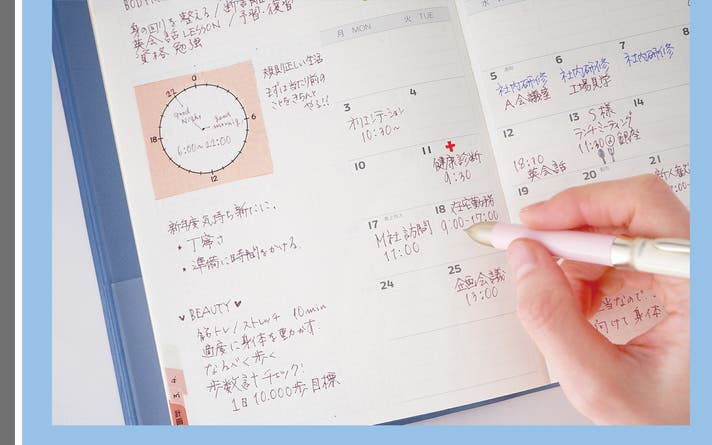 身の回りを整える/断
英会話LESSON/予習・復習
資格 勉強
規則正しい生活
まずは当たり前の
ことをきちんと
やる!!
0
22
6
18
12
good
Night
good
morning
6:00~22:00
新年度気持ち新たに、
・丁寧さ
・準備に時間をかける。
♥BEAUTY♥
筋トレ/ストレッチ 10min
適度に身体を動かす
なるべく歩く
歩数計チェック!
1日10,000歩目標
計画
月 MON
火 TUE
水
3
オリエンテーション
10:30~
4
5
社内研修
A会議室
6
社内研修
工場見学
7
社内研修
8
10
11
健康診断
9:30
12
18:30
英会話
13
S様
ランチミーティング
11:30@銀座
14
17
M社訪問
11:00
18
在宅勤務
9:00-17:00
19
20
21
新人歓
24
25
企画会議
13:00
当なので..
向けて身体